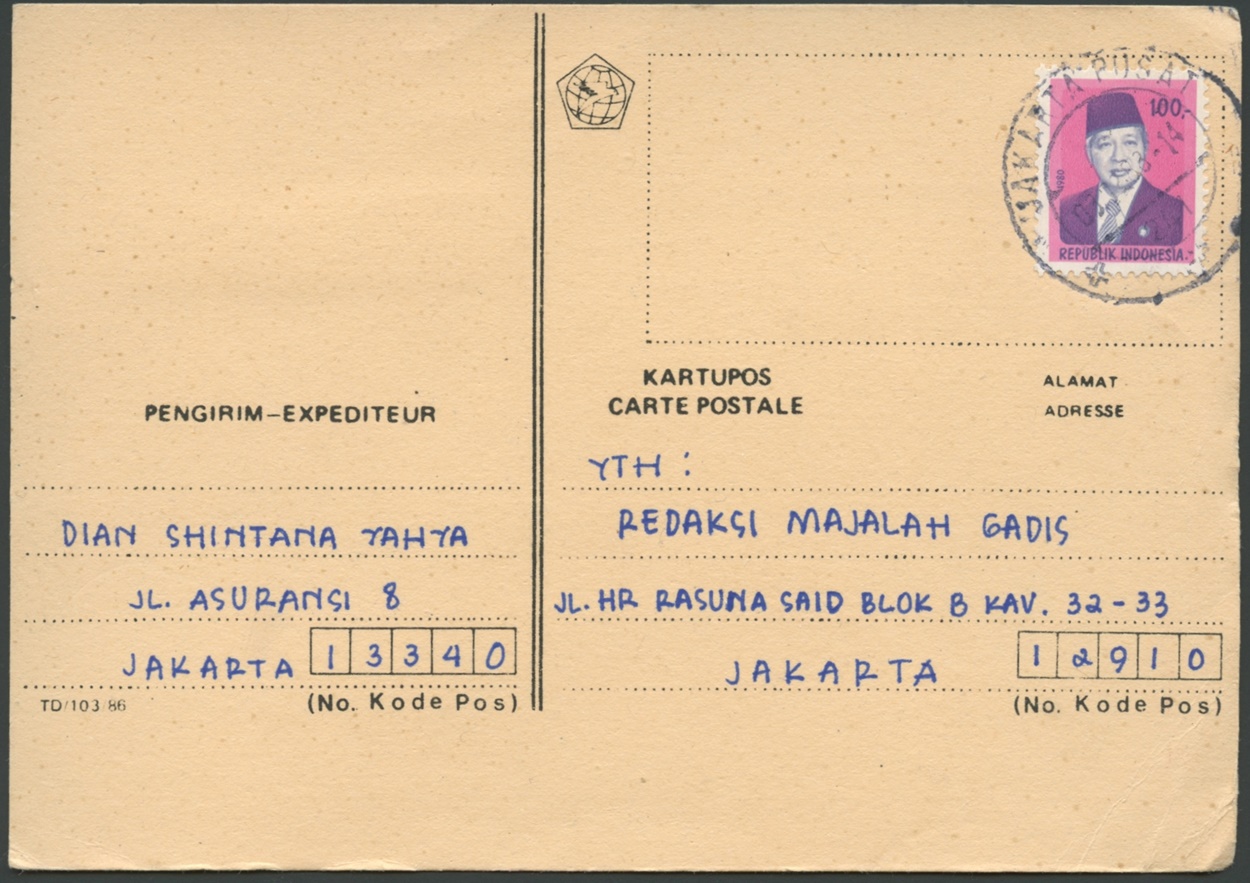 PENGIRIM-EXPEDITEUR
DIAN SHINTANA YAHYA
JL. ASURANSI 8
JAKARTA 13340
(No. Kode Pos)
TD/103/86
JAKARTA PUSAT
100.-
1980
REPUBLIK INDONESIA
KARTUPOS
CARTE POSTALE
ALAMAT
ADRESSE
YTH :
REDAKSI MAJALAH GADIS
JL. HR RASUNA SAID BLOK B KAV. 32-33
JAKARTA 12910
(No. Kode Pos)